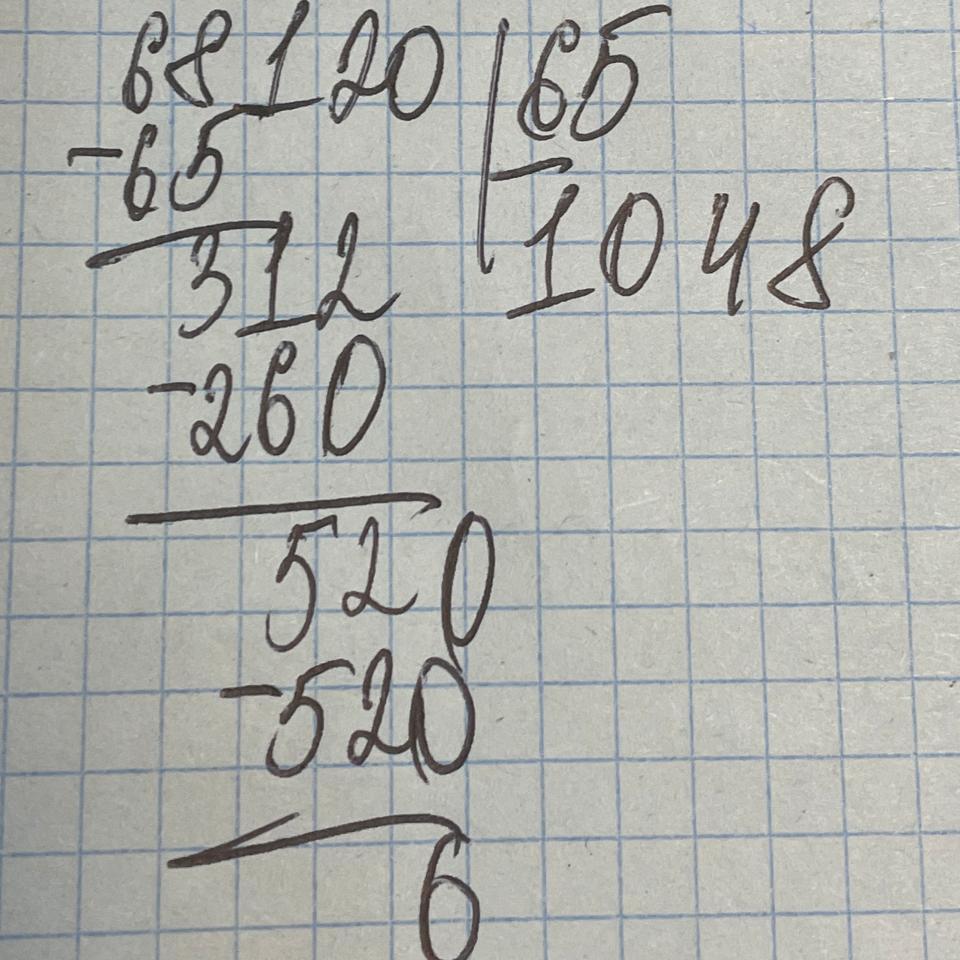 68120 | 65
-65
1048
312
-260
520
-520
6